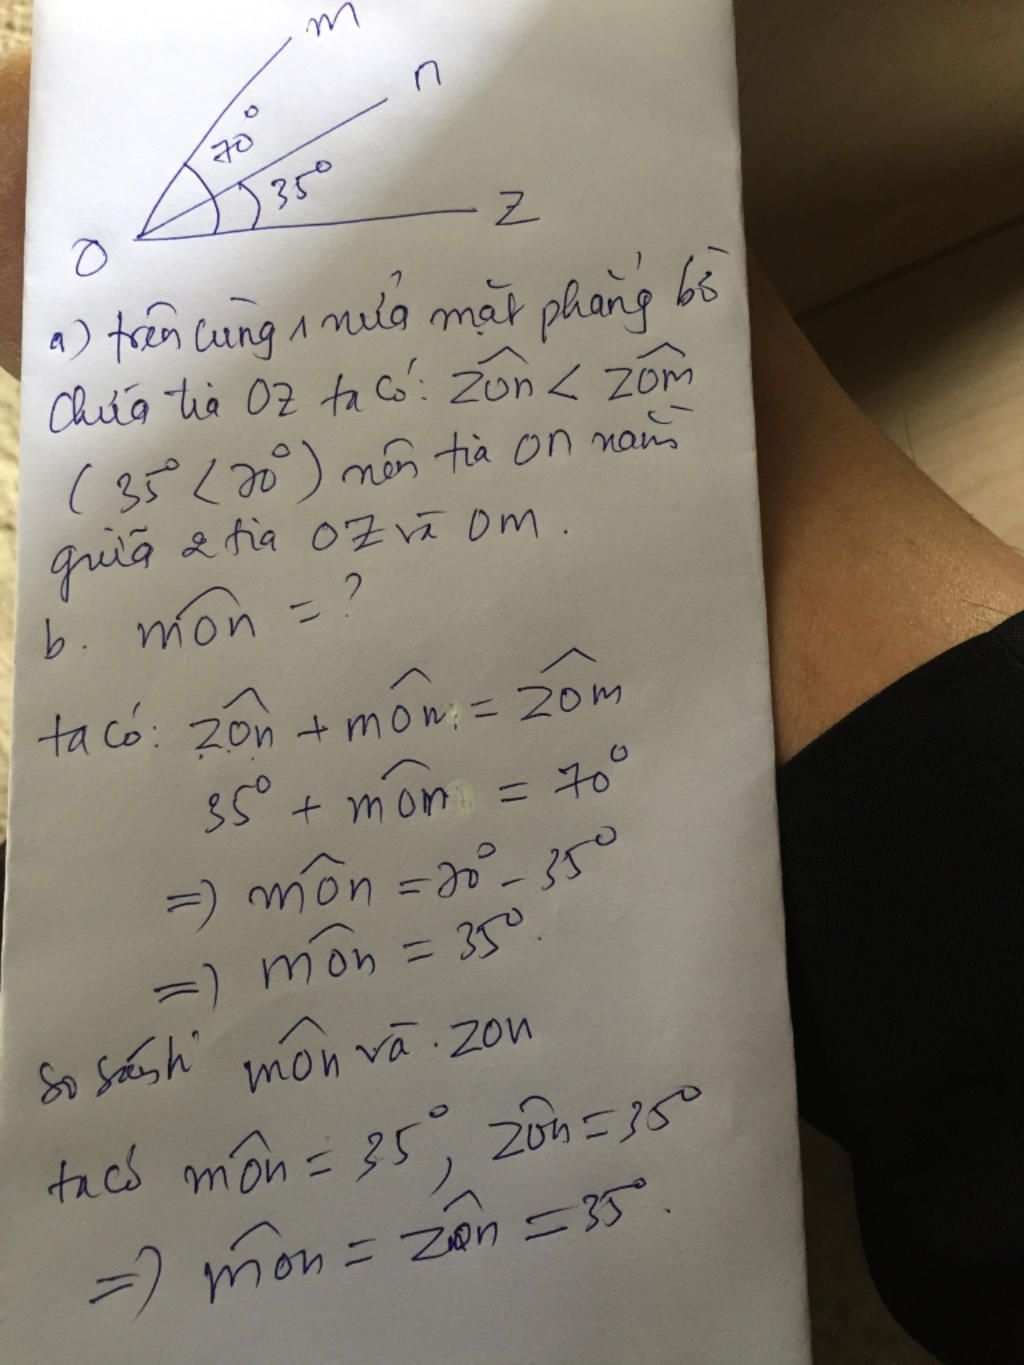 m
n
70°
35°
O
Z
a) trên cùng 1 nửa mặt phẳng bờ
chứa tia OZ ta có: ZÔn < ZÔm
(35° < 70°) nên tia On nằm
giữa 2 tia OZ và Om.
b. mÔn = ?
ta có: ZÔn + mÔn = ZÔm
35° + mÔn = 70°
=> mÔn = 70° - 35°
=> mÔn = 35°.
so sánh mÔn và ZOn
ta có mÔn = 35°, ZÔn = 35°
=> mÔn = ZÔn = 35°.